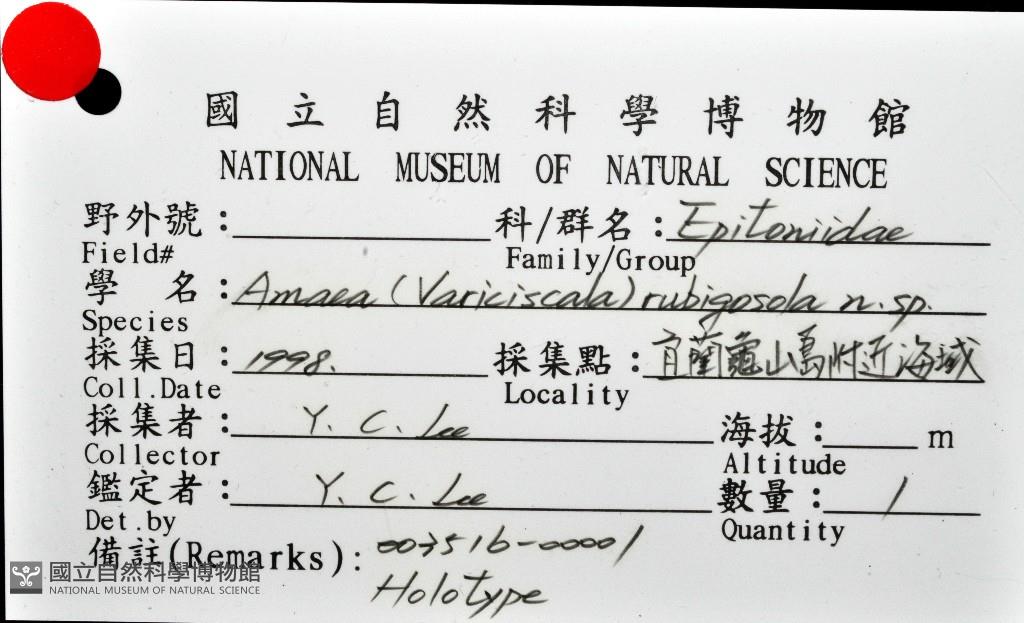 國立自然科學博物館
NATIONAL MUSEUM OF NATURAL SCIENCE
野外號： 科/群名：Epitoniidae
Field# Family/Group
學 名：Amaea (Variciscala) rubigosola n. sp.
Species
採集日：1998. 採集點：宜蘭龜山島附近海域
Coll.Date Locality
採集者： Y. C. Lee 海拔： m
Collector Altitude
鑑定者： Y. C. Lee 數量： 1
Det.by Quantity
備註(Remarks): 003516-00001
Holotype
國立自然科學博物館
NATIONAL MUSEUM OF NATURAL SCIENCE